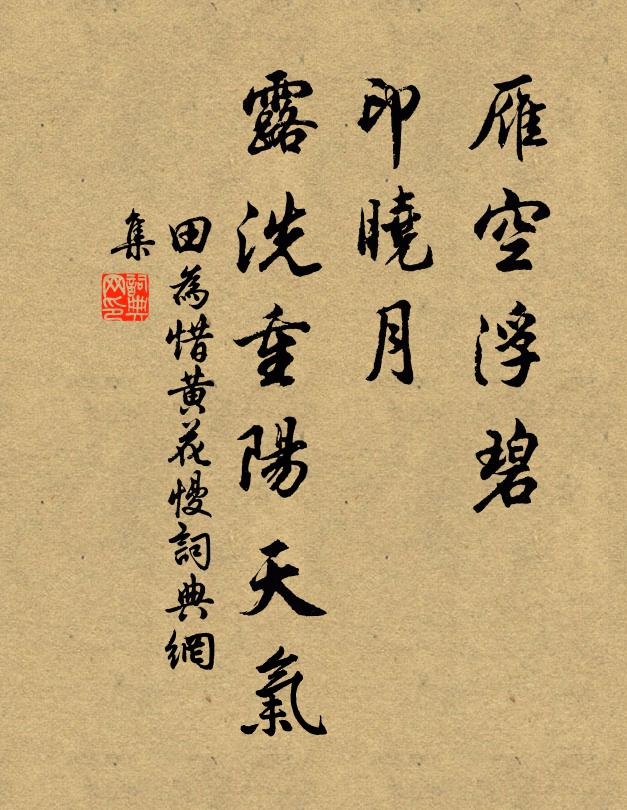 雁空浮碧
印曉月
露洗重陽天氣
田為惜黃花慢詞典網
集
詞典
网印